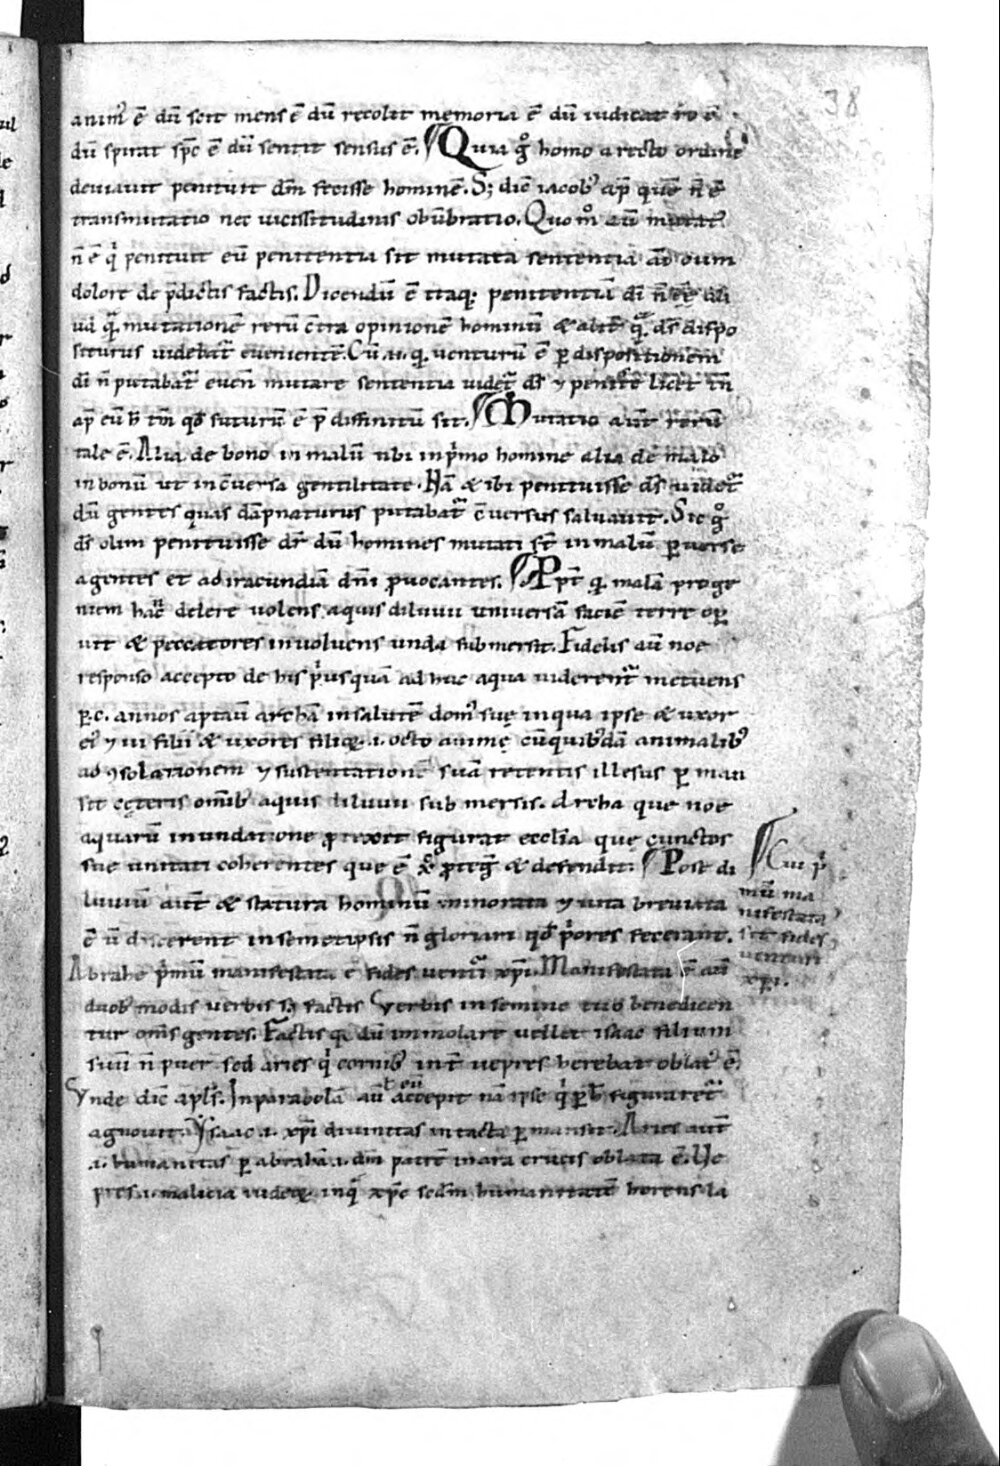 38
anim᷒ ē dū scit mens ē dū recolit memoria ē dū iudicat ro ē.
dū spirat sp̄c ē dū sentit sensus ē. ¶ Quia gͦ homo a recto ordine
deuiauit penituit dm̄ fecisse hominē. S; dic̄ iacob᷒ ap̄ quē n̄ ē
transmutatio nec uicissitudinis obūbratio. Quomͦ
n̄ ē qͥ penituit eū penitentia sit mutata sententia
dolore de p̄dictis factis. Dicendū ē itaq; penitentiā di n̄
mutationē rerū c̄tra opinionē hominū & ds̄ dispo
siturus uidebat᷑ euenientē. Cū .n. q; uenturū ē ꝑ dispositionem
di n̄ putabat᷑ euen̄ mutare sententia uidet᷑ ds̄ ⁊ penitere licet tn̄
ap̄ eū h̄ tm̄ qd̄ futurū ē p̄diffinitū sit. ¶ Mutatio aut̄ rerū
tale ē. Alia de bono in malū ubi in pͥmo homine alia de malo
in bonū ut in c̄uersa gentilitate. Nā & ibi penituisse ds̄ uidet᷑
dū gentes quas dāpnaturus putabat᷑ c̄uersus saluauit. Sic gͦ
ds̄ olim penituisse dr̄ dū homines mutati st̄ in malū ꝑuerse
agentes et ad iracundiā dn̄i ꝓuocantes. ¶ Ppt̄ q; malā proge
niem hāc delere uolens aquis diluuii uniuersā faciē terre oꝑ
uit & peccatores inuoluens unda submersit. Fidelis aū noe
responso accepto de his pͥusquā adhuc aqua uiderent᷑ metuens
ꝑ .c. annos aptauī archā in salutē dom᷒ sue in qua ipse & uxor
ei᷒ ⁊ iii filii & uxores filioꝝ .i. octo anime cū quibusdā animalib᷒
ad ꝯsolationem ⁊ sustentationē suā retentis illesus ꝑman
sit ceteris omīb᷒ aquis diluuii submersis. Archa que noe
aquarū inundatione ꝓtexit figurat ecclīa que cunctos
sue unitati coherentes que ē xͦ ꝓteḡ & defendit. ¶ Post di
luuiū aut̄ & statura hominū minorata ⁊ uita breuiata
ē ū discerent in semetipsis n̄ gloriari qd̄ pͥores fecerant.
Abrahe pͥmū manifestata ē fides uenturi xp̄i. Manifestata ē aū
duob᷒ modis uerbis ⁊ factis Verbis in semine tuo benedicen
tur om̄s gentes. Factis q; dū immolare uellet isaac filium
suū n̄ puer sed aries qͥ cornib᷒ int̄ uepres herebat oblat᷒ ē.
Vnde dic̄ apl̄s. In parabolā eū accepit nā ipse qͥ figuraret᷑
agnouit. Ysaac .i. xp̄i diuinitas intacta ꝑmansit. Aries aut̄
.i. humanitas ꝑ abrahā .i. dm̄ patrē in ara crucis oblata ē. Ve
pres .i. malicia iudeoꝝ in qͣ xp̄c scd̄m humanitatē herens la
¶ Cui pͥ
mū ma
nifestata
sit fides
uenturi
xp̄i.